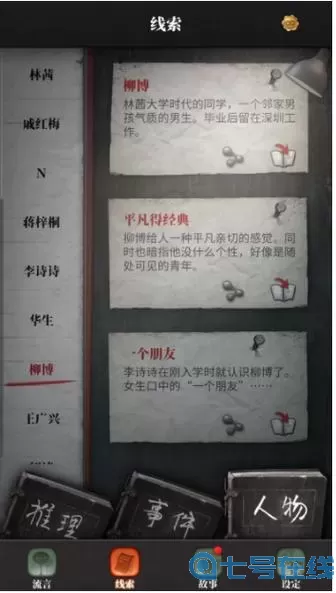 线索
林茜
戚红梅
N
蒋梓桐
李诗诗
华生
柳博
王广兴
柳博
林茜大学时代的同学，一个邻家男
孩气质的男生。毕业后留在深圳工
作。
平凡得经典
柳博给人一种平凡亲切的感觉。同
时也暗指他没什么个性，好像是随
处可见的青年。
一个朋友
李诗诗在刚入学时就认识柳博了。
女生口中的“一个朋友”……
推理
事件
人物
流言
线索
故事
设定
七号在线